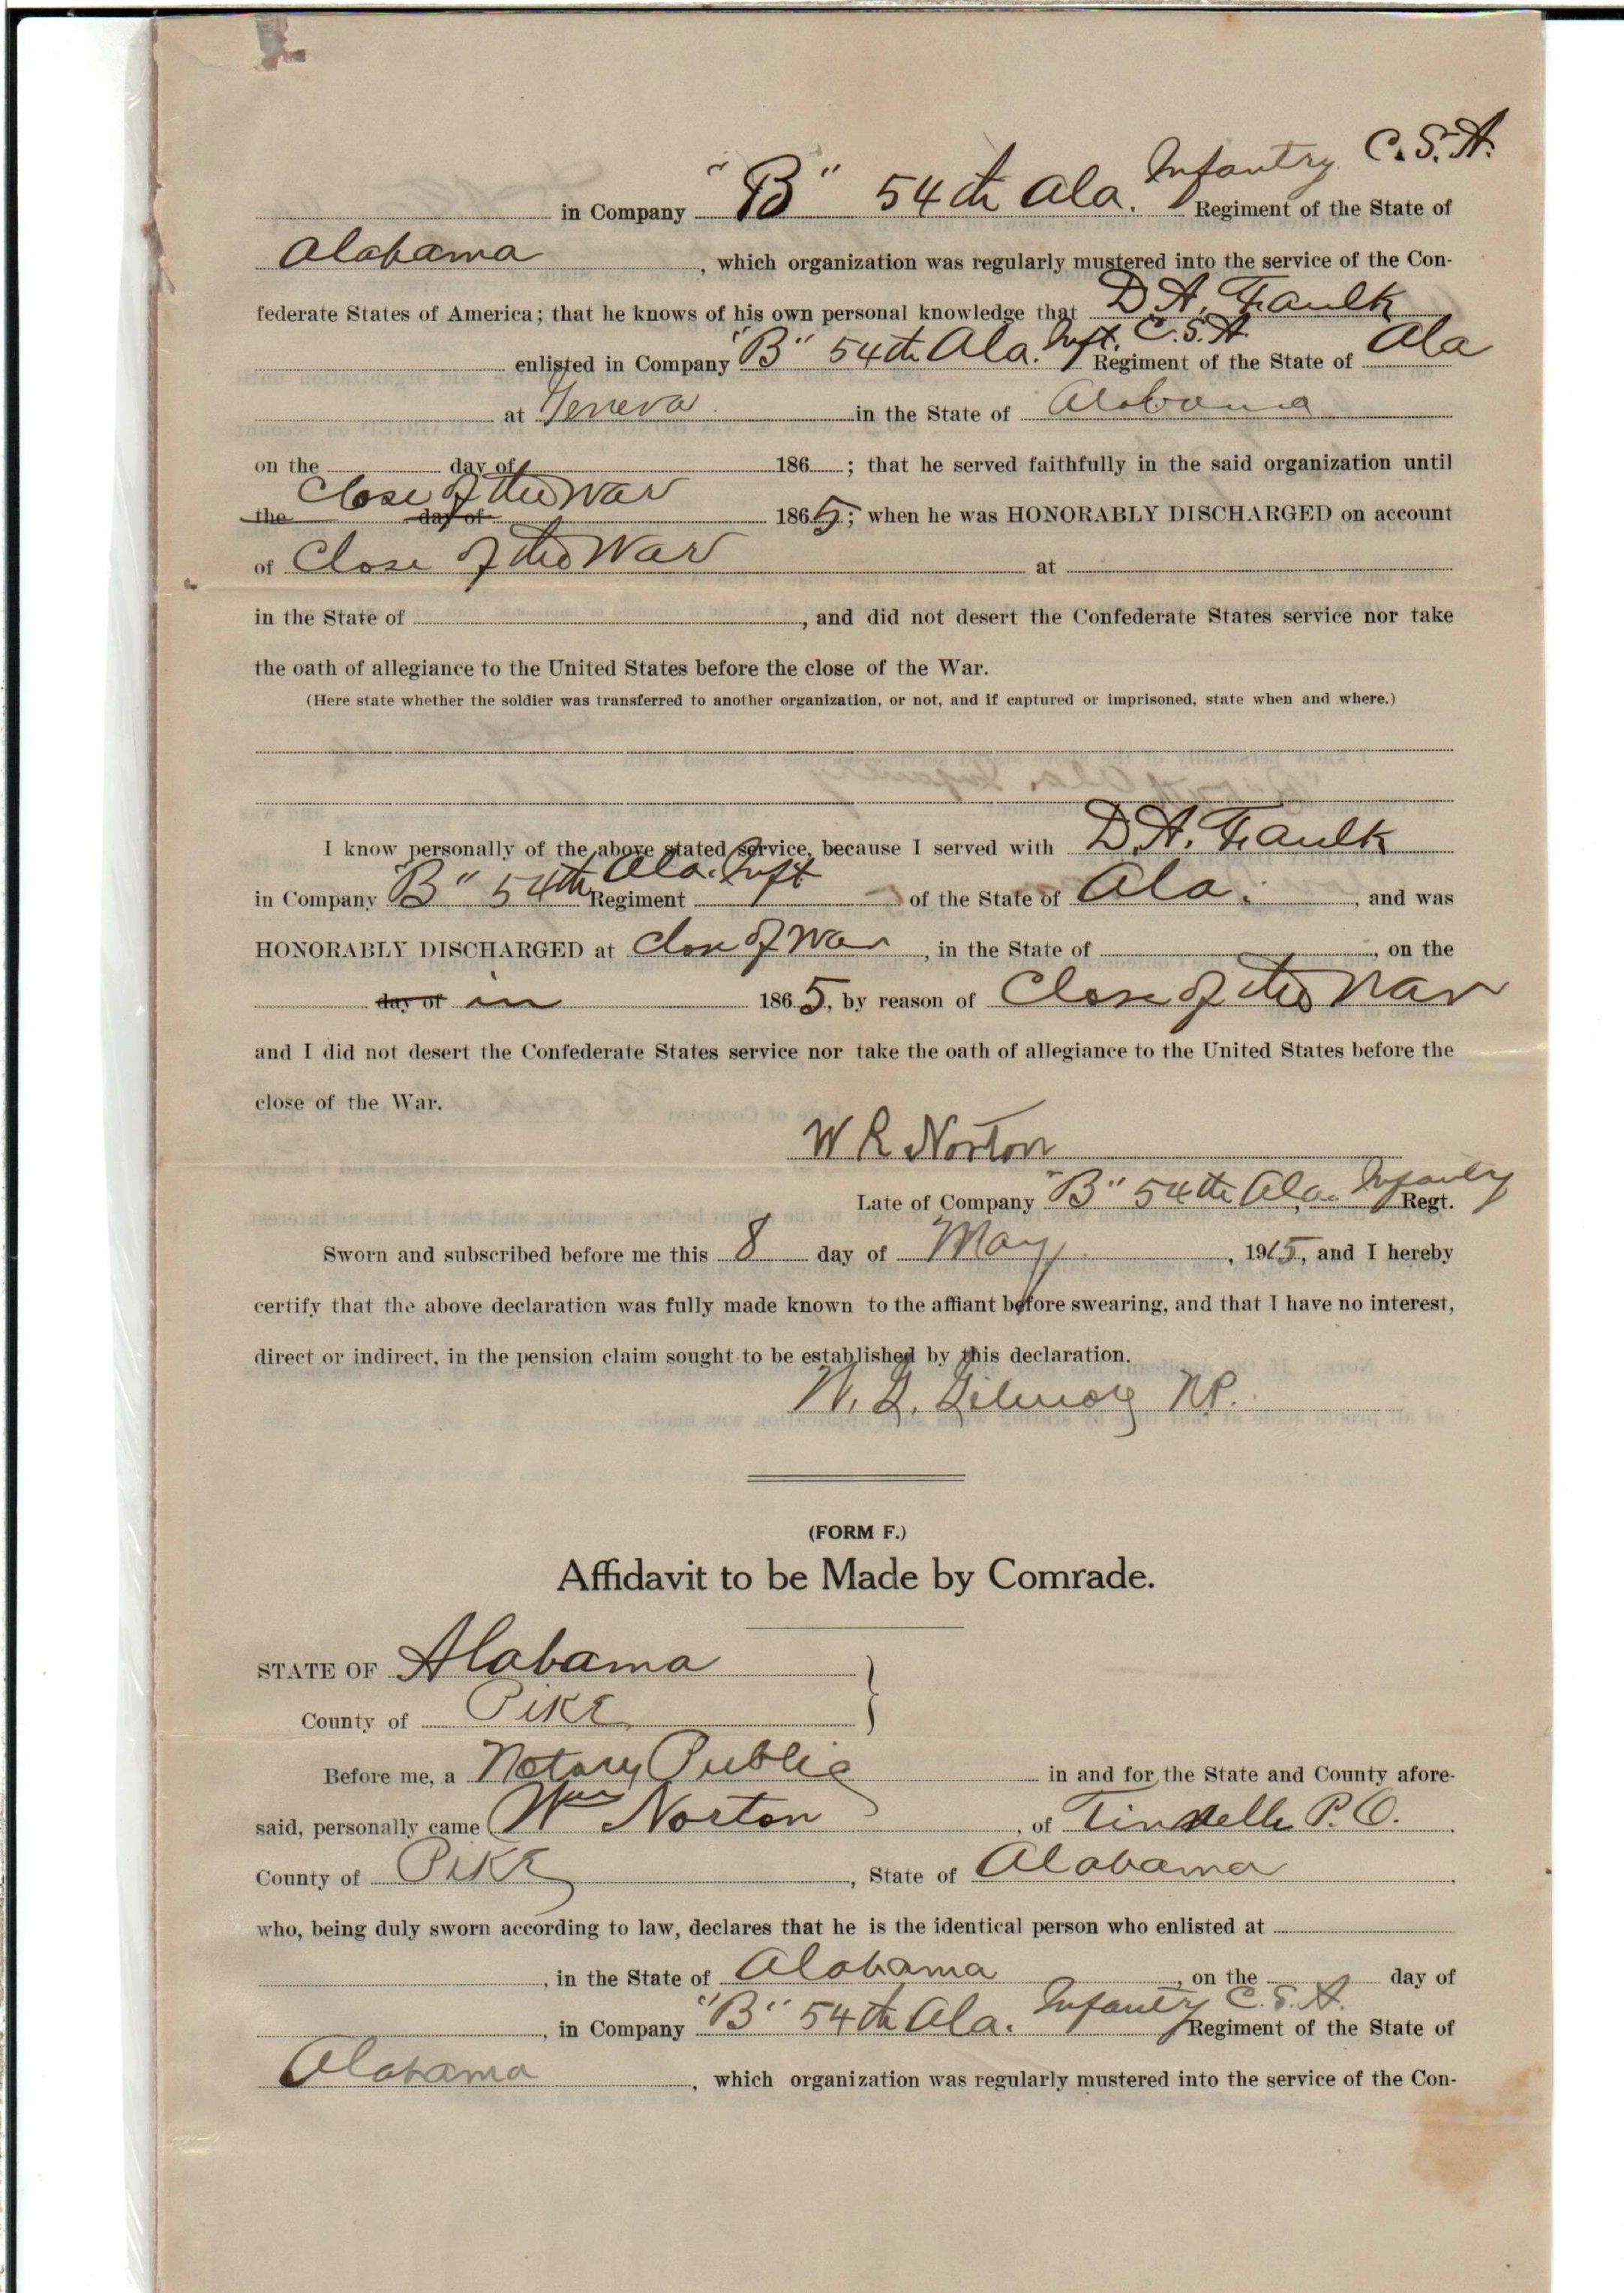 in Company "B" 54th Ala. Infantry C.S.A. Regiment of the State of
Alabama, which organization was regularly mustered into the service of the Con-
federate States of America; that he knows of his own personal knowledge that D A. Faulk
enlisted in Company "B" 54th Ala. Inft. C.S.A. Regiment of the State of Ala
at Geneva in the State of Alabama
on the day of 186 ; that he served faithfully in the said organization until
the Close of the War day of 1865; when he was HONORABLY DISCHARGED on account
of Close of the War at
in the State of , and did not desert the Confederate States service nor take
the oath of allegiance to the United States before the close of the War.
(Here state whether the soldier was transferred to another organization, or not, and if captured or imprisoned, state when and where.)
I know personally of the above stated service, because I served with D.A. Faulk
in Company "B" 54th Ala. Inft Regiment of the State of Ala. , and was
HONORABLY DISCHARGED at close of War , in the State of , on the
day of in 1865, by reason of Close of the War
and I did not desert the Confederate States service nor take the oath of allegiance to the United States before the
close of the War.
W R Norton
Late of Company "B" 54th Ala. Infantry Regt.
Sworn and subscribed before me this 8 day of May , 1915, and I hereby
certify that the above declaration was fully made known to the affiant before swearing, and that I have no interest,
direct or indirect, in the pension claim sought to be established by this declaration.
N.P.
(FORM F.)
Affidavit to be Made by Comrade.
STATE OF Alabama }
County of Pike
Before me, a Notary Public in and for the State and County afore-
said, personally came Wm Norton , of P.O.
County of Pike , State of Alabama
who, being duly sworn according to law, declares that he is the identical person who enlisted at
, in the State of Alabama , on the day of
, in Company "B" 54th Ala. Infantry C.S.A. Regiment of the State of
Alabama , which organization was regularly mustered into the service of the Con-